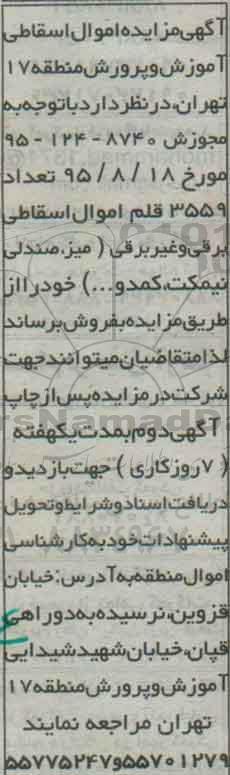 آگهی مزایده اموال اسقاطی
آموزش و پرورش منطقه ۱۷
تهران، در نظر دارد با توجه به
مجوزش ۸۷۴۰ - ۱۲۴ - ۹۵
مورخ ۱۸ / ۸ / ۹۵ تعداد
۳۵۵۹ قلم اموال اسقاطی
برقی و غیر برقی ( میز، صندلی
نیمکت، کمد و...) خود را از
طریق مزایده بفروش برساند
لذا متقاضیان میتوانند جهت
شرکت در مزایده پس از چاپ
آگهی دوم بمدت یکهفته
( ۷ روز کاری ) جهت بازدید و
دریافت اسناد و شرایط و تحویل
پیشنهادات خود به کارشناسی
اموال منطقه به آدرس: خیابان
قزوین، نرسیده به دوراهی
قپان، خیابان شهید شیدایی
آموزش و پرورش منطقه ۱۷
تهران مراجعه نمایند
۵۵۷۰۱۲۷۹و۵۵۷۷۵۲۴۷